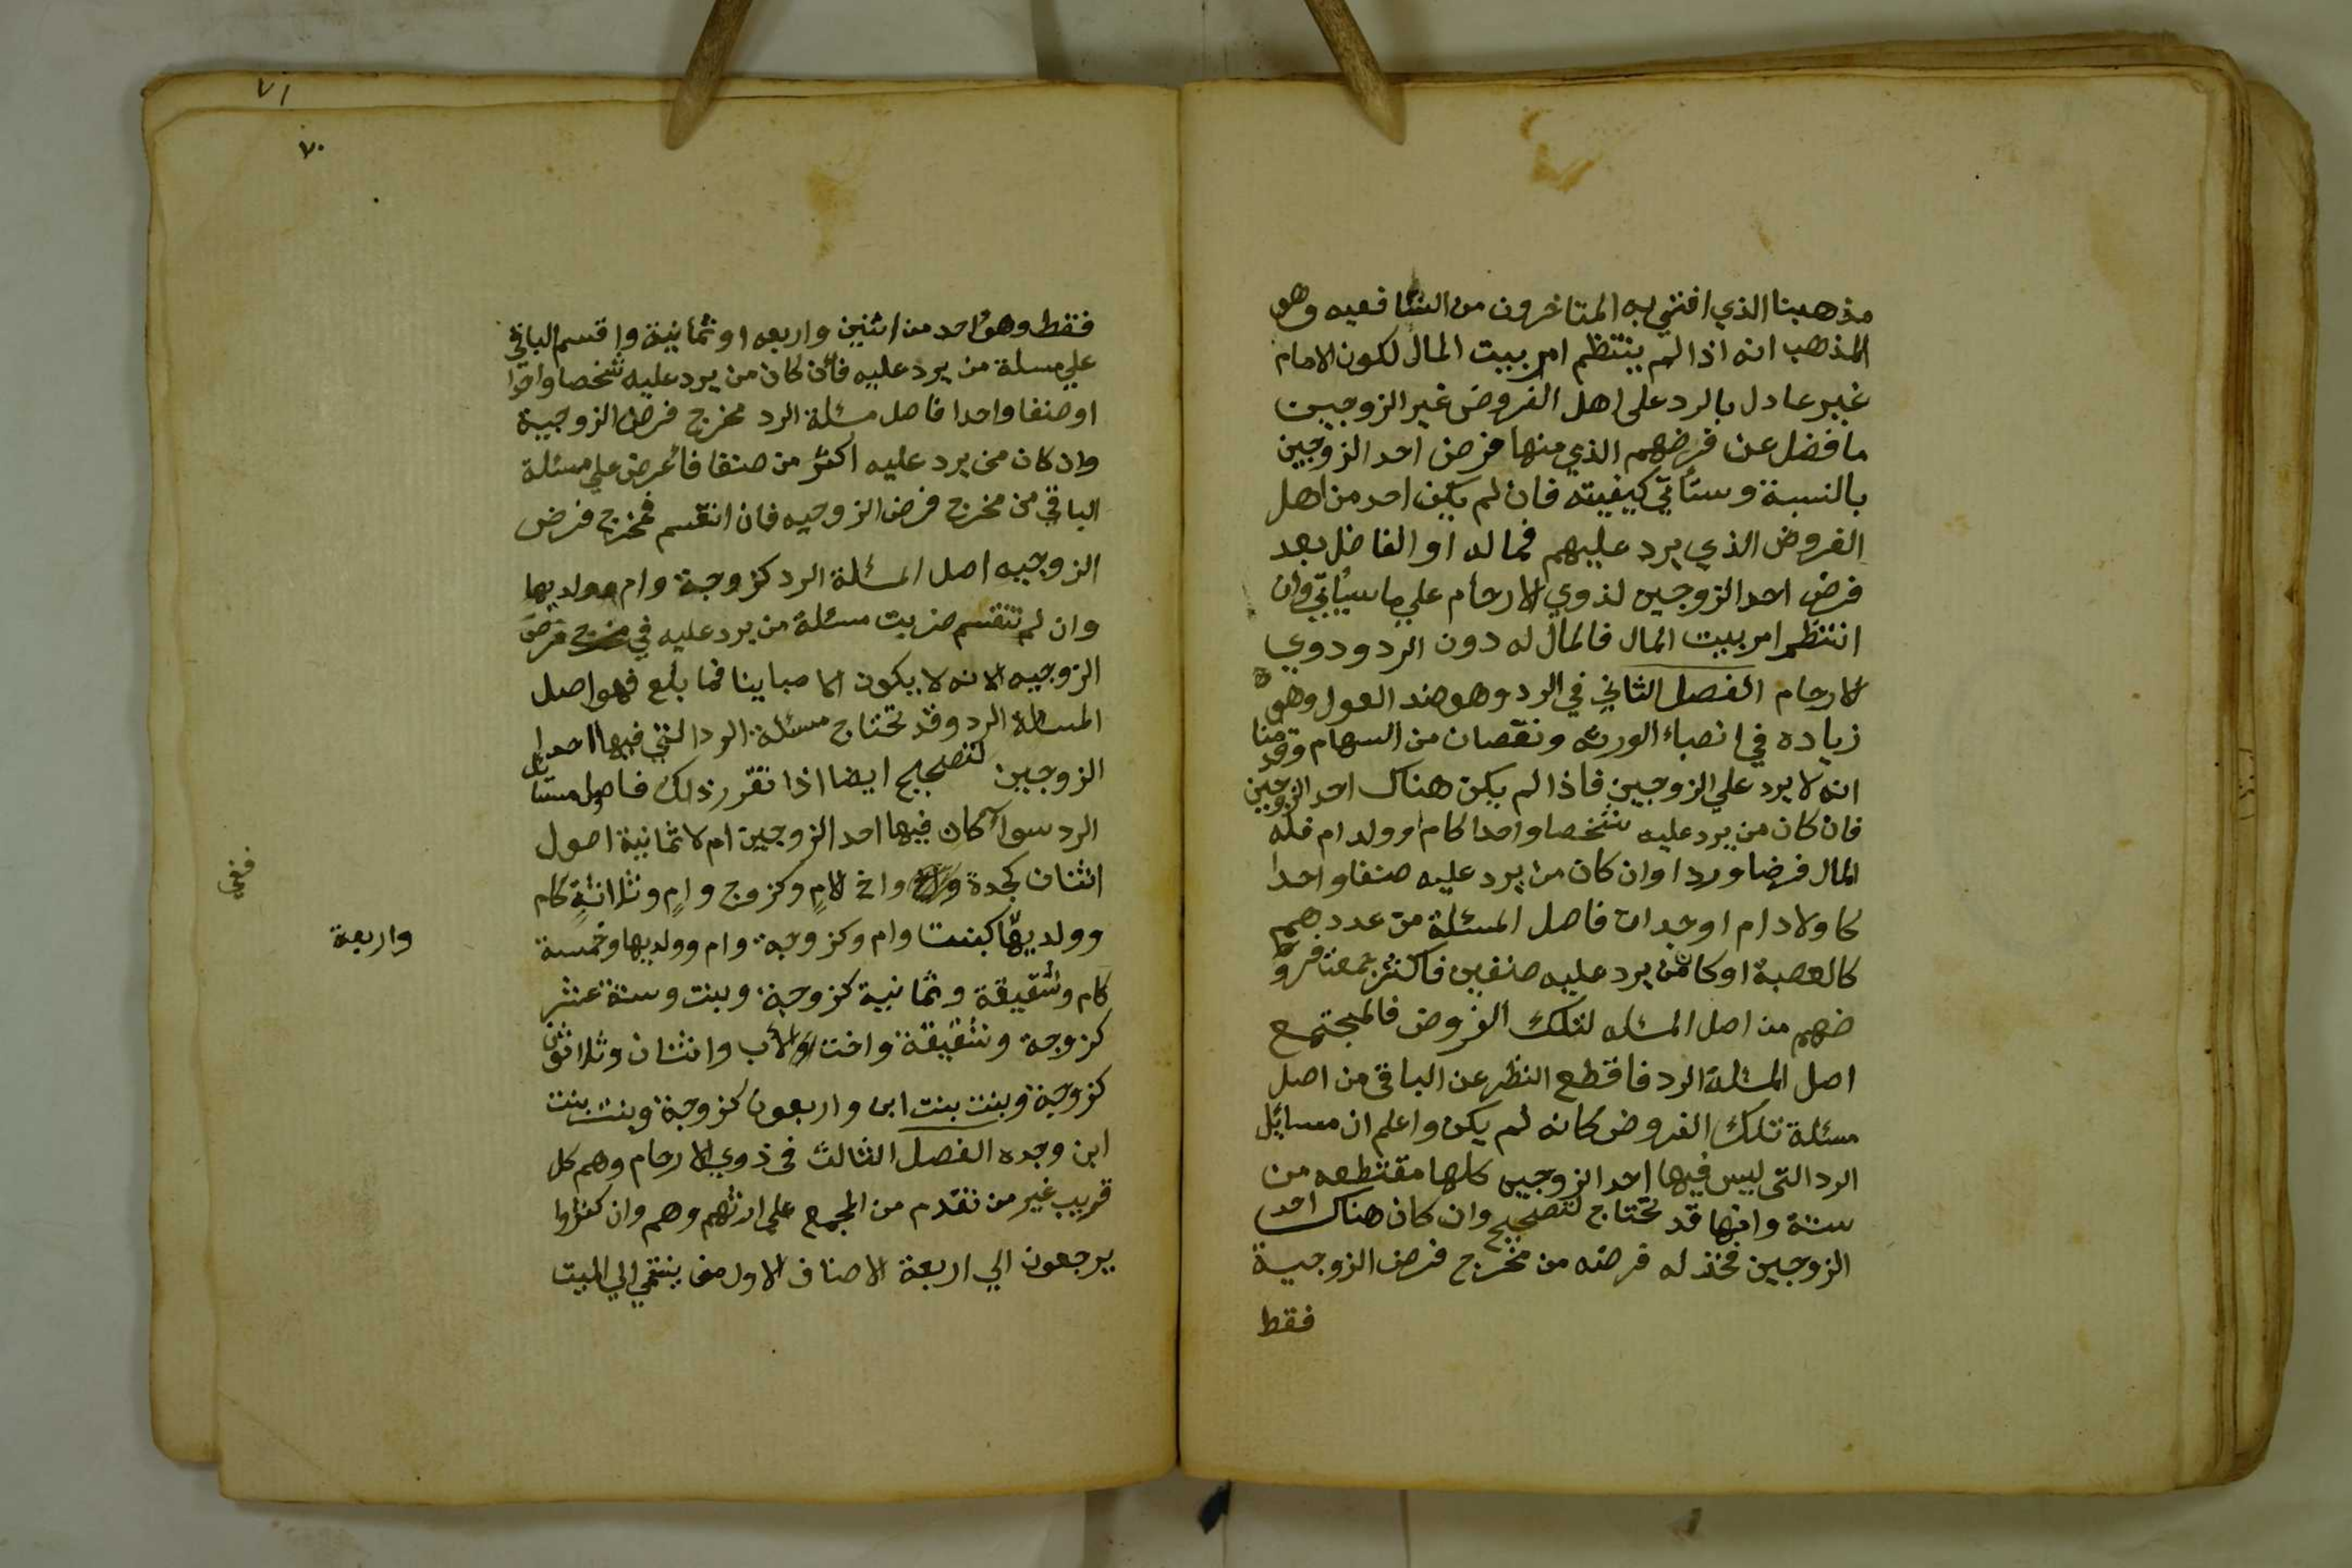 مذهبنا الذي افتي به المتاخرون من الشافعيه وهو
المذهب انه اذا لم ينتظم امر بيت المال لكون الامام
غير عادل بالرد على اهل الفروض غير الزوجين
ما فضل عن فرضهم الذي منها فرض احد الزوجين
بالنسبة وستأتي كيفيته فان لم يكن احد من اهل
الفروض الذي يرد عليهم فماله او الفاضل بعد
فرض احد الزوجين لذوي الارحام علي ما سيأتي وان
انتظم امر بيت المال فالمال له دون الرد وذوي
الارحام الفصل الثاني في الرد وهو ضد العول وهو
زياده في انصباء الورثه ونقصان من السهام وقدمنا
انه لا يرد علي الزوجين فاذا لم يكن هناك احد الزوجين
فان كان من يرد عليه شخصا واحدا كام او ولد ام فله
المال فرضا وردا وان كان من يرد عليه صنفا واحدا
كاولاد ام او جدات فاصل المسئلة من عددهم
كالعصبة او كان من يرد عليه صنفين فاكثر جمعنا فرو
ضهم من اصل المسئله لتلك الفروض فالمجتمع
اصل المسئلة الرد فاقطع النظر عن الباقي من اصل
مسئلة تلك الفروض كانه لم يكن واعلم ان مسايل
الرد التي ليس فيها احد الزوجين كلها مقتطعه من
ستة وانها قد تحتاج لتصحيح وان كان هناك احد
الزوجين فخذ له فرضه من مخرج فرض الزوجية
فقط
٧١
٧٠
فقط وهو احد من اثنين واربعه او ثمانية واقسم الباقي
علي مسلة من يرد عليه فان كان من يرد عليه شخصا واحدا
او صنفا واحدا فاصل مسئلة الرد مخرج فرض الزوجية
وان كان من يرد عليه اكثر من صنف فاعرض علي مسئلة
الباقي من مخرج فرض الزوجيه فان انقسم فمخرج فرض
الزوجيه اصل المسئلة الرد كزوجة وام وولديها
وان لم تنقسم ضربت مسئلة من يرد عليه في مخرج فرض
الزوجيه لانه لا يكون الا مباينا فما بلغ فهو اصل
المسئلة الرد وقد تحتاج مسئلة الرد التي فيها احد
الزوجين لتصحيح ايضا اذا تقرر ذلك فاصول مسايل
الرد سوآ كان فيها احد الزوجين ام لا ثمانية اصول
اثنان كجدة واخ لامٍ وكزوج وامٍ وثلاثةٍ كام
وولديها كبنت وام وكزوجة وام وولديها وخمسة
واربعة
ففي
كام وشقيقة وثمانية كزوجة وبنت وستة عشر
كزوجة وشقيقة واخت لاب واثنان وثلاثون
كزوجة وبنت بنت ابن واربعون كزوجة وبنت بنت
ابن وجده الفصل الثالث في ذوي الارحام وهم كل
قريب غير من تقدم من المجمع على ارثهم وهم وان كثروا
يرجعون الي اربعة الاصناف الاول من ينتمي الي الميت